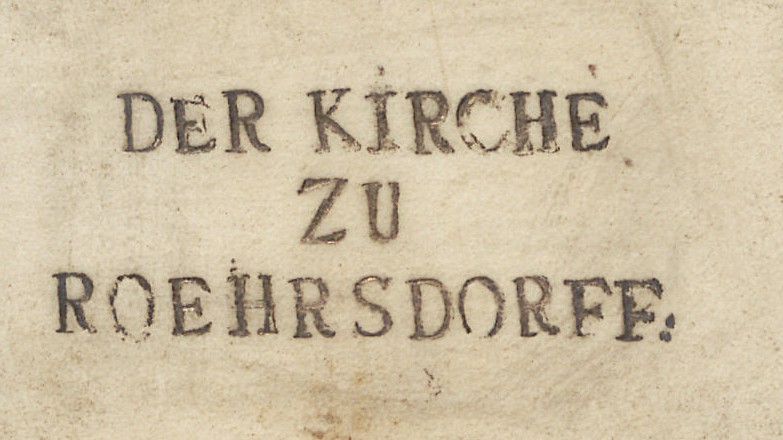 DER KIRCHE
ZU
ROEHRSDORFF.